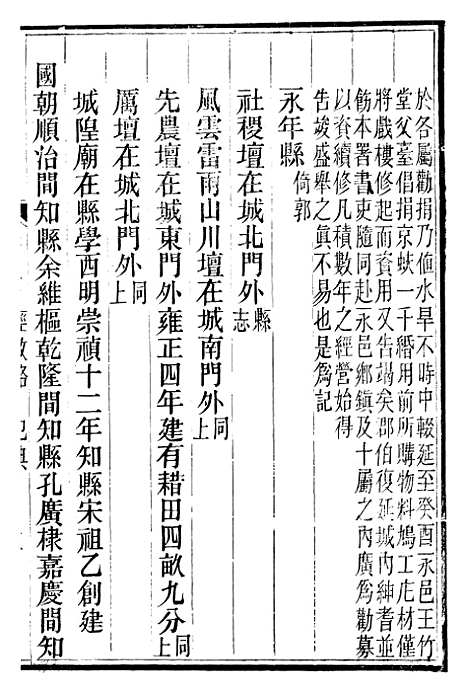 於各屬勸捐乃値水旱不時中輟延至癸酉永邑王竹
堂父臺倡捐京蚨一千緡用前所購物料鳩工庀材僅
將戲樓修起而資用又告竭矣郡伯復延城内紳耆並
飭本署書吏隨同赴永邑鄉鎮及十屬之内廣爲勸募
以資續修凡積數年之經營始得
告竣盛舉之眞不易也是爲記
永年縣倚郭
社稷壇在城北門外縣志
風雲雷雨山川壇在城南門外同上
先農壇在城東門外雍正四年建有耤田四畝九分同上
厲壇在城北門外同上
城隍廟在縣學西明崇禎十二年知縣宋祖乙創建
國朝順治間知縣余維樞乾隆間知縣孔廣棣嘉慶間知
經政略 祀典